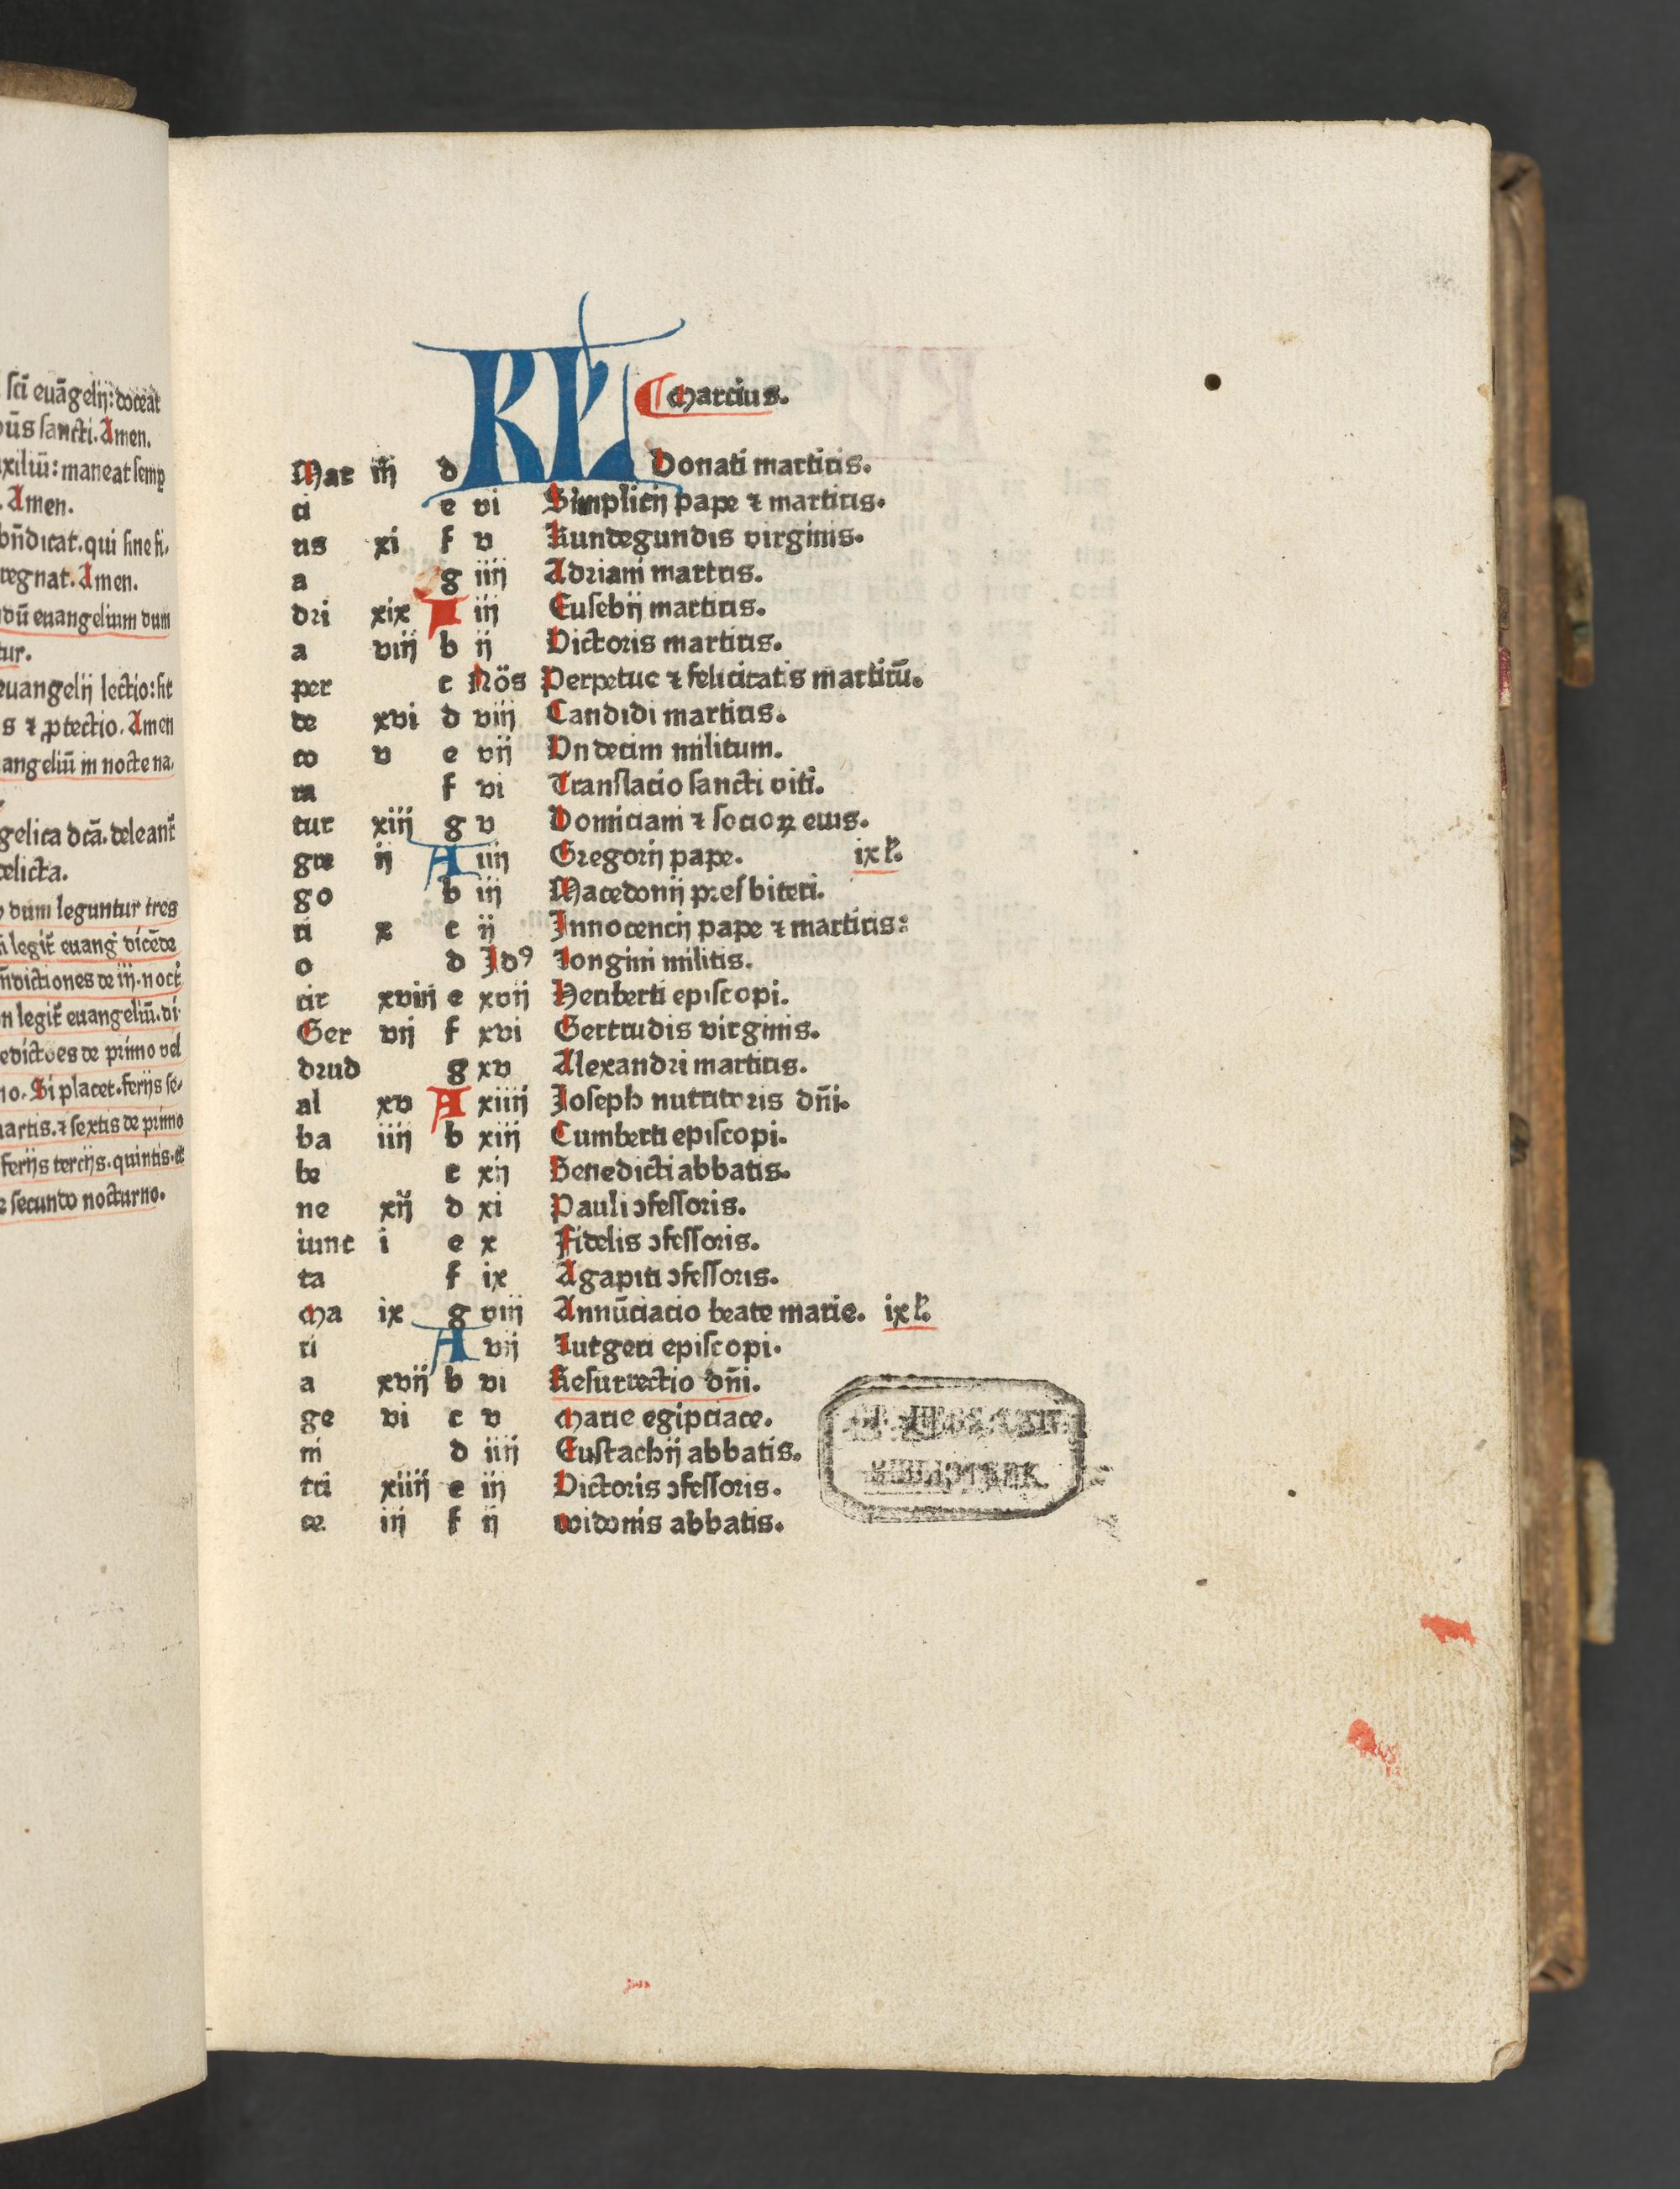 sci euāgelij: doceāt
ūs sancti. Amen.
xiliū: maneat semp
. Amen.
bn̄dicat. qui sine fi,
regnat. Amen.
dū euangelium dum
tur.
euangelij lectio: sit
s ⁊ ꝓtectio. Amen
angeliū in nocte na,
gelica dcā. deleant̄
elicta.
dum leguntur tres
legit̄ euanḡ dicēde
n̄dictiones de iij. noct̄
n legit̄ euangeliū. di
edictōes de primo vel
no. Si placet. ferijs se,
artis. ⁊ sextis de primo
ferijs tercijs. quintis.
secundo nocturno.
KL̕ Marcius.
Mar iij d Donati martiris.
ci e vi Simplicij pape ⁊ martiris.
us xi f v Kundegundis virginis.
a g iiij Adriani martris.
dri xix A iij Eusebij martiris.
a viij b ij Victoris martiris.
per c Nōs Perpetue ⁊ felicitatis martirū.
de xvi d viij Candidi martiris.
co v e vij Vndecim militum.
ra f vi Translacio sancti viti.
tur xiij g v Domiciani ⁊ socioꝝ eius.
gre ij A iiij Gregorij pape. ix l̕.
go b iij Macedonij presbiteri.
ri x c ij Innocencij pape ⁊ martiris:
o d Idꝰ Longini militis.
cir xviij e xvij Heriberti episcopi.
Ger vij f xvi Gertrudis virginis.
drud g xv Alexandri martiris.
al xv A xiiij Joseph nutritoris dn̄i.
ba iiij b xiij Cumberti episcopi.
be c xij Benedicti abbatis.
ne xij d xi Pauli ɔfessoris.
iunc i e x Fidelis ɔfessoris.
ta f ix Agapiti ɔfessoris.
Ma ix g viij Annūciacio beate marie. ix l̕.
ri A vij Lutgeri episcopi.
a xvij b vi Resurrectio dn̄i.
ge vi c v Marie egipciace.
ni d iiij Eustachij abbatis.
tri xiiij e iij Victoris ɔfessoris.
ce iij f ij Widonis abbatis.
BIBLIOTHEK